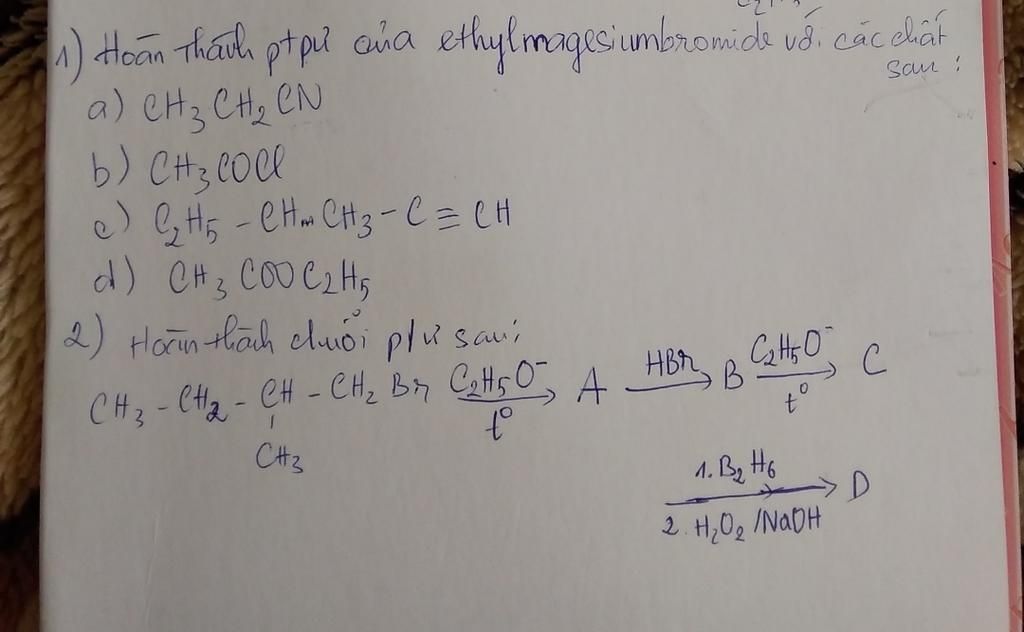 1) Hoàn thành ptpư của ethylmagesiumbromide với các chất
sau :
a) CH3 CH2 CN
b) CH3COCl
c) C2H5 - CHmCH3 - C ≡ CH
d) CH3 COOC2H5
2) Hoàn thành chuỗi p/ư sau:
CH3 - CH2 - CH - CH2 Br C2H5O⁻ t° → A HBr → B C2H5O⁻ t° → C
CH3
1. B2H6
→ D
2. H2O2 /NaOH